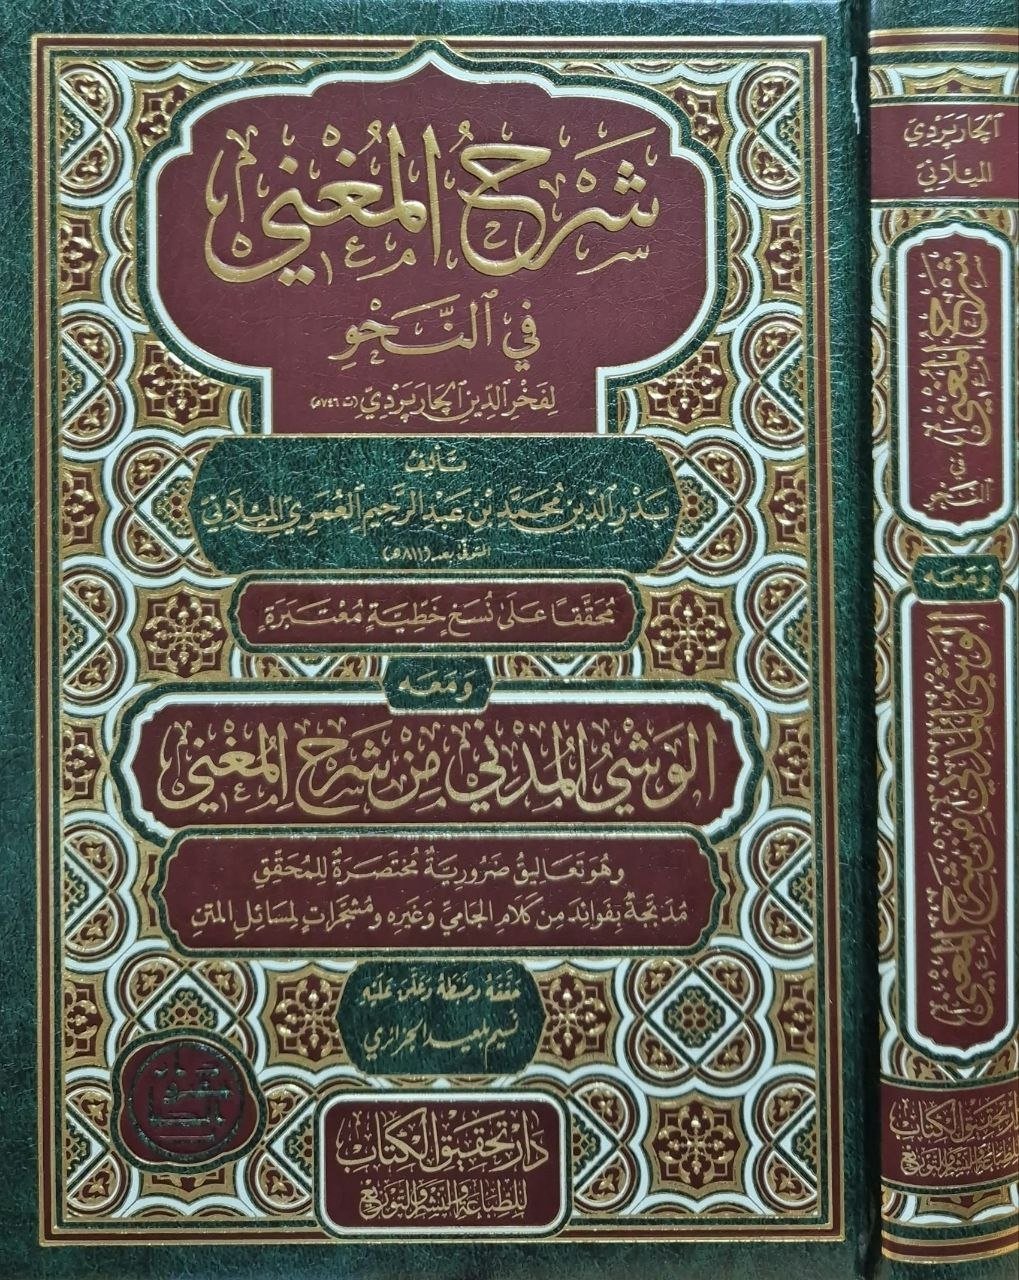 شَرْحُ المُغْنِي
فِي النَّحْوِ
لِفَخْرِ الدِّينِ الجَارَبَرْدِيِّ (ت ٧٤٦هـ)
تأليف
بَدْرِ الدِّينِ مُحَمَّدِ بْنِ عَبْدِ الرَّحِيمِ العُمَرِيِّ المِيْلَانِيِّ
المتوفى بعد (٨١١هـ)
مُحَقَّقًا عَلَى نُسَخٍ خَطِّيَّةٍ مُعْتَبَرَةٍ
وَمَعَهُ
الوَشْيُ المُدْنِي مِنْ شَرْحِ المُغْنِي
وَهُوَ تَعَالِيقُ ضَرُورِيَةٌ مُخْتَصَرَةٌ لِلمُحَقِّقِ
مُدَبَّجَةٌ بِفَوَائِدَ مِن كَلَامِ الجَامِيِّ وَغَيْرِهِ وَمُشَجَّرَاتٍ لِمَسَائِلِ المَتْنِ
حَقَّقَهُ وَضَبَطَهُ وَعَلَّقَ عَلَيْهِ
نسيم بلعيد الجزائري
دَارُ تَحْقِيقِ الكِتَابِ
لِلطِّبَاعَةِ وَالنَّشْرِ وَالتَّوْزِيعِ
الجَارَبَرْدِي
المِيْلَانِي
شَرْحُ المُغْنِي
فِي النَّحْوِ
وَمَعَهُ
الوَشْيُ المُدْنِي مِنْ شَرْحِ المُغْنِي
دَارُ تَحْقِيقِ الكِتَابِ
لِلطِّبَاعَةِ وَالنَّشْرِ وَالتَّوْزِيعِ